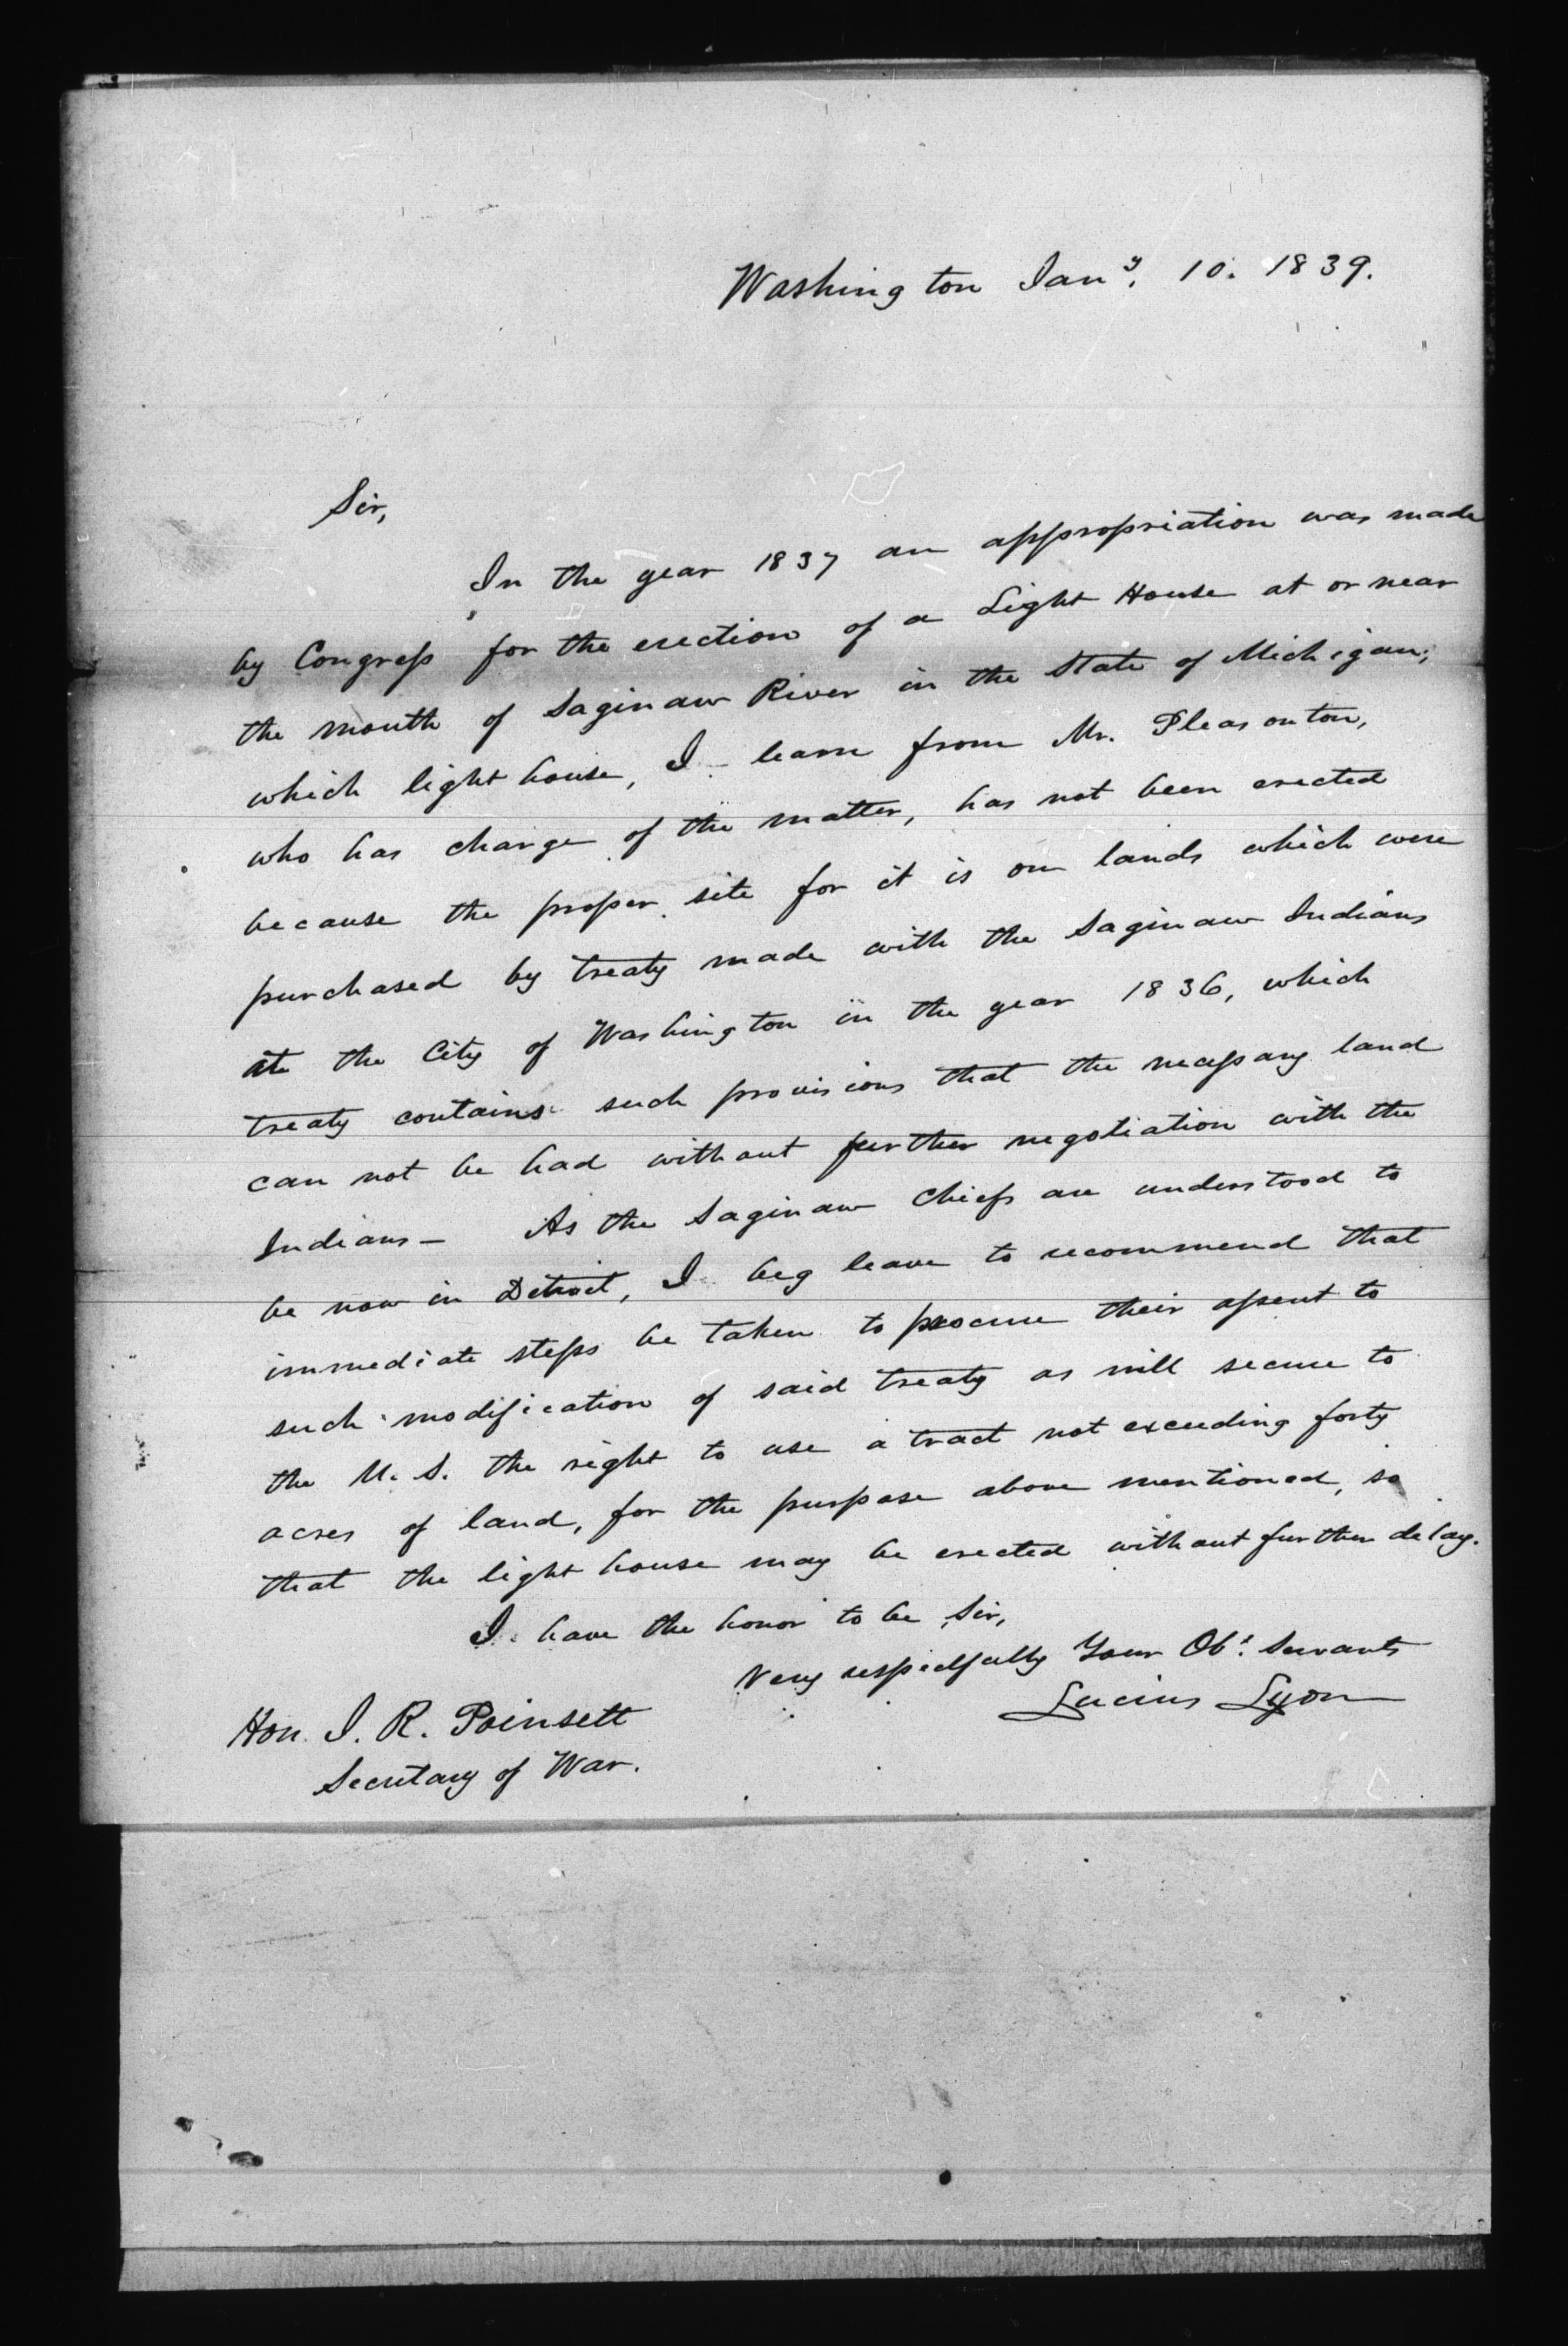 Washington Jany. 10. 1839.
Sir,
In the year 1837 an appropriation was made
by Congress for the erection of a Light House at or near
the mouth of Saginaw River in the State of Michigan;
which light house, I learn from Mr. Pleasonton,
who has charge of the matter, has not been erected
because the proper site for it is on lands which were
purchased by treaty made with the Saginaw Indians
at the City of Washington in the year 1836, which
treaty contains such provisions that the necessary land
can not be had without further negotiation with the
Indians— As the Saginaw Chiefs are understood to
be now in Detroit, I beg leave to recommend that
immediate steps be taken to procure their assent to
such modification of said treaty as will secure to
the U. S. the right to use a tract not exceeding forty
acres of land, for the purpose above mentioned, so
that the light house may be erected without further delay.
I have the honor to be, Sir,
Very respectfully Your Obt. Servant
Lucius Lyon
Hon. J. R. Poinsett
Secretary of War.